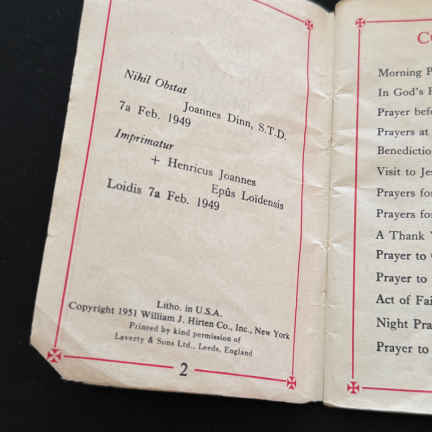 Nihil Obstat
Joannes Dinn, S.T.D.
7a Feb. 1949
Imprimatur
+ Henricus Joannes
Epûs Loidensis
Loidis 7a Feb. 1949
Litho. in U.S.A.
Copyright 1951 William J. Hirten Co., Inc., New York
Printed by kind permission of
Laverty & Sons Ltd., Leeds, England
2
Morning
In God's
Prayer
Prayers at
Visit to
Prayers
Prayers
A Thank
Prayer to
Prayer to
Act of
Night
Prayer to